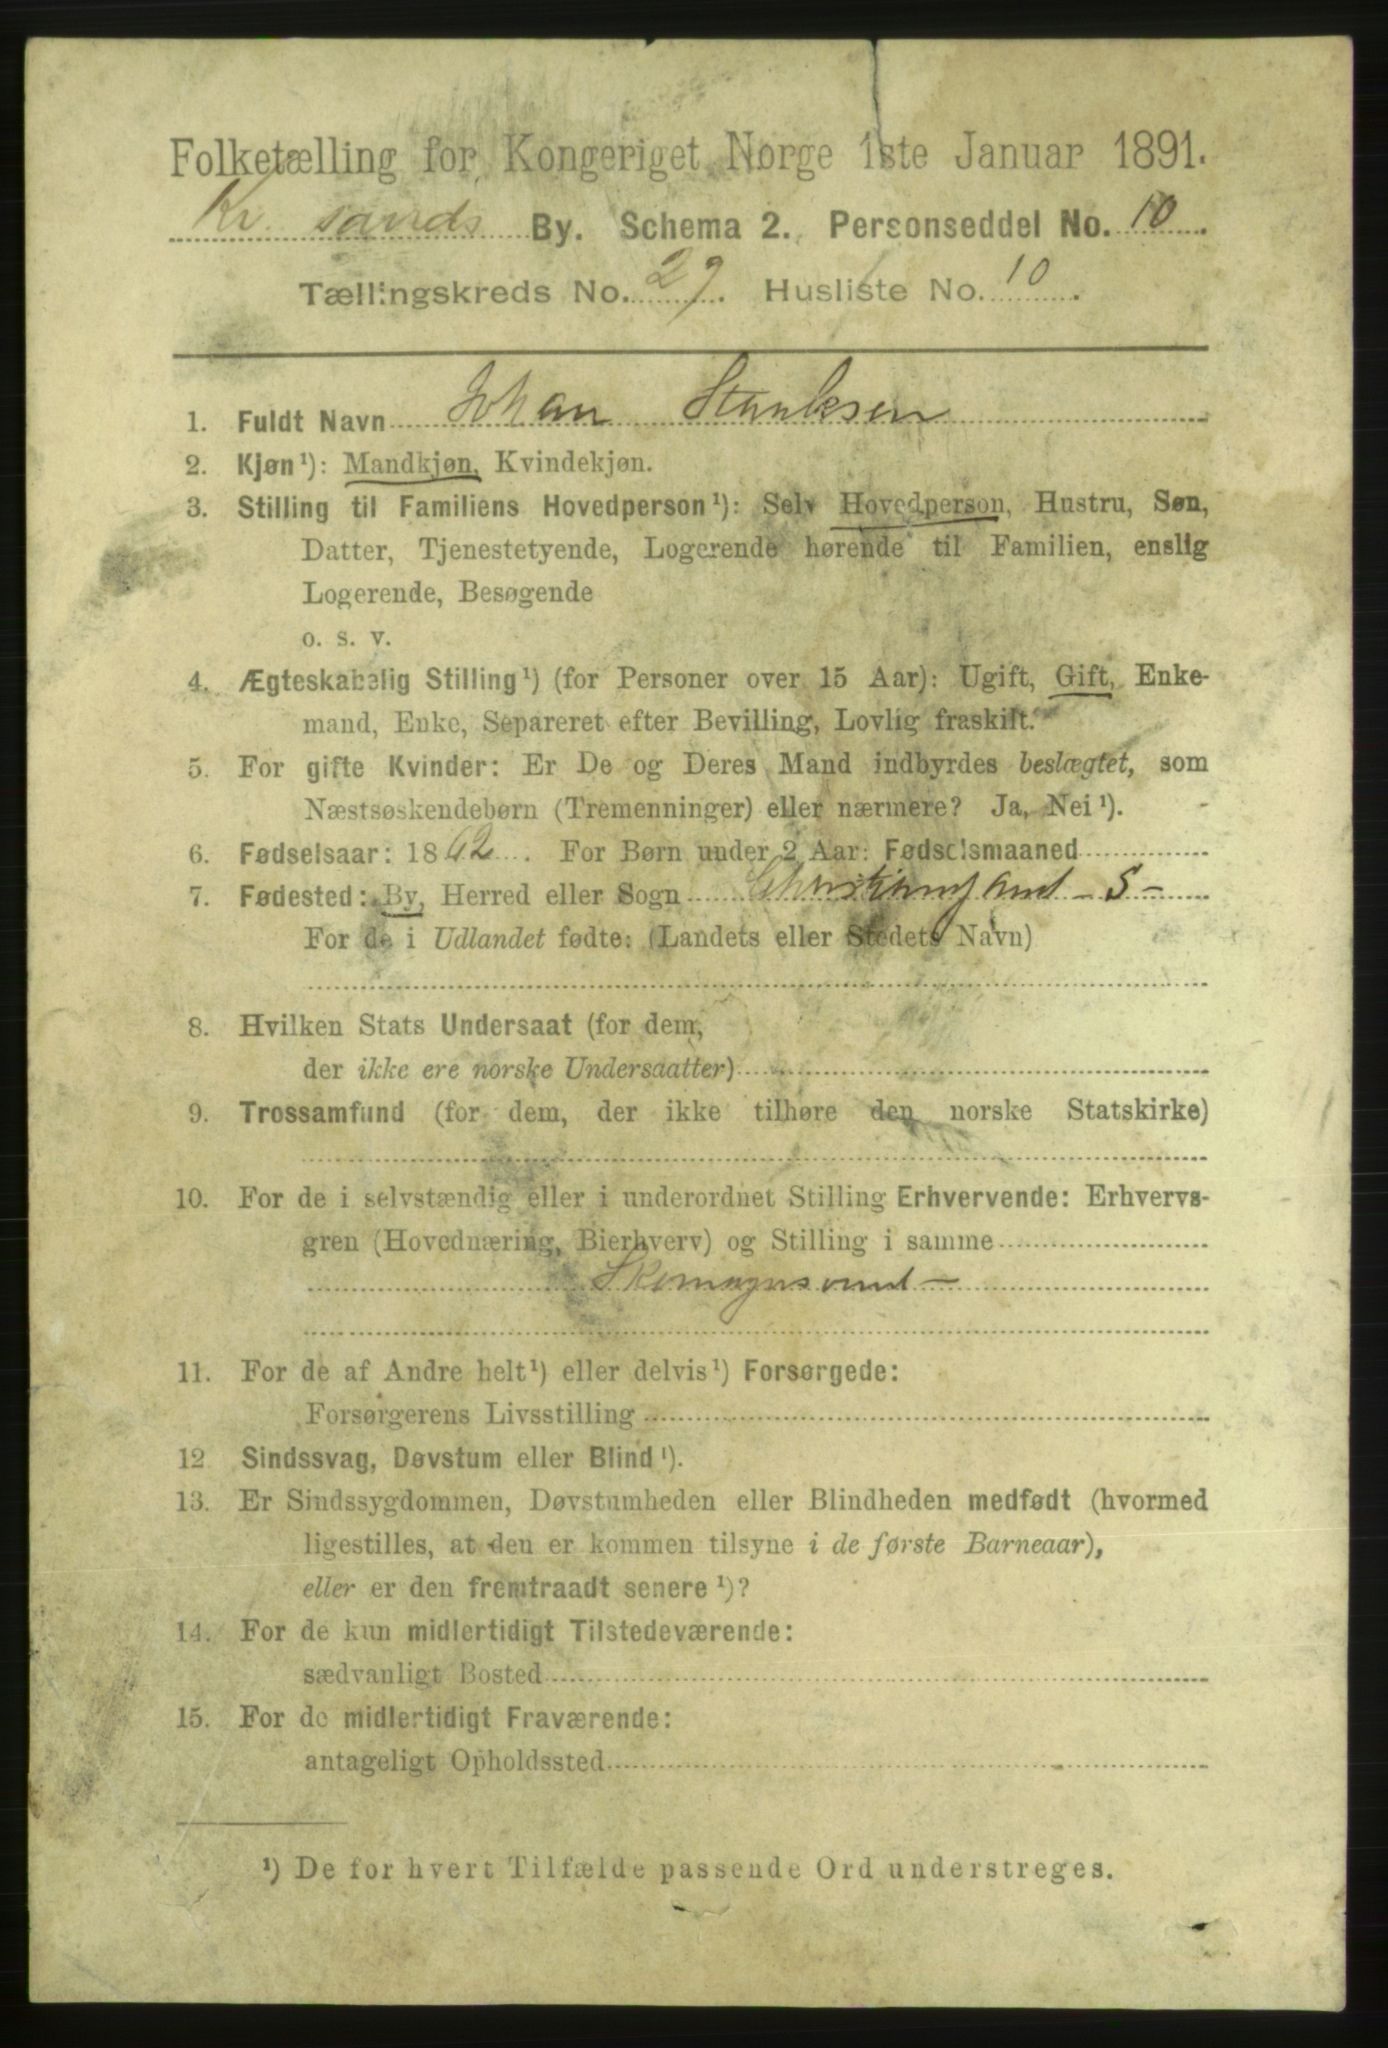 Folketælling for Kongeriget Norge 1ste Januar 1891.
Kr.sands By. Schema 2. Personseddel No. 10.
Tællingskreds No. 29. Husliste No. 10.
1. Fuldt Navn Johan
2. Kjøn¹): Mandkjøn, Kvindekjøn.
3. Stilling til Familiens Hovedperson¹): Selv Hovedperson, Hustru, Søn,
Datter, Tjenestetyende, Logerende hørende til Familien, enslig
Logerende, Besøgende
o. s. v.
4. Ægteskabelig Stilling¹) (for Personer over 15 Aar): Ugift, Gift, Enke-
mand, Enke, Separeret efter Bevilling, Lovlig fraskilt.
5. For gifte Kvinder: Er De og Deres Mand indbyrdes beslægtet, som
Næstsøskendebørn (Tremenninger) eller nærmere? Ja, Nei¹).
6. Fødselsaar: 1862. For Børn under 2 Aar: Fødselsmaaned
7. Fødested: By, Herred eller Sogn Christiansand - S -
For de i Udlandet fødte: (Landets eller Stedets Navn)
8. Hvilken Stats Undersaat (for dem,
der ikke ere norske Undersaatter)
9. Trossamfund (for dem, der ikke tilhøre den norske Statskirke)
10. For de i selvstændig eller i underordnet Stilling Erhvervende: Erhvervs-
gren (Hovednæring, Bierhverv) og Stilling i samme
Skomagersvend -
11. For de af Andre helt¹) eller delvis¹) Forsørgede:
Forsørgerens Livsstilling
12 Sindssvag, Døvstum eller Blind¹).
13. Er Sindssygdommen, Døvstumheden eller Blindheden medfødt (hvormed
ligestilles, at den er kommen tilsyne i de første Barneaar),
eller er den fremtraadt senere¹)?
14. For de kun midlertidigt Tilstedeværende:
sædvanligt Bosted
15. For de midlertidigt Fraværende:
antageligt Opholdssted
¹) De for hvert Tilfælde passende Ord understreges.